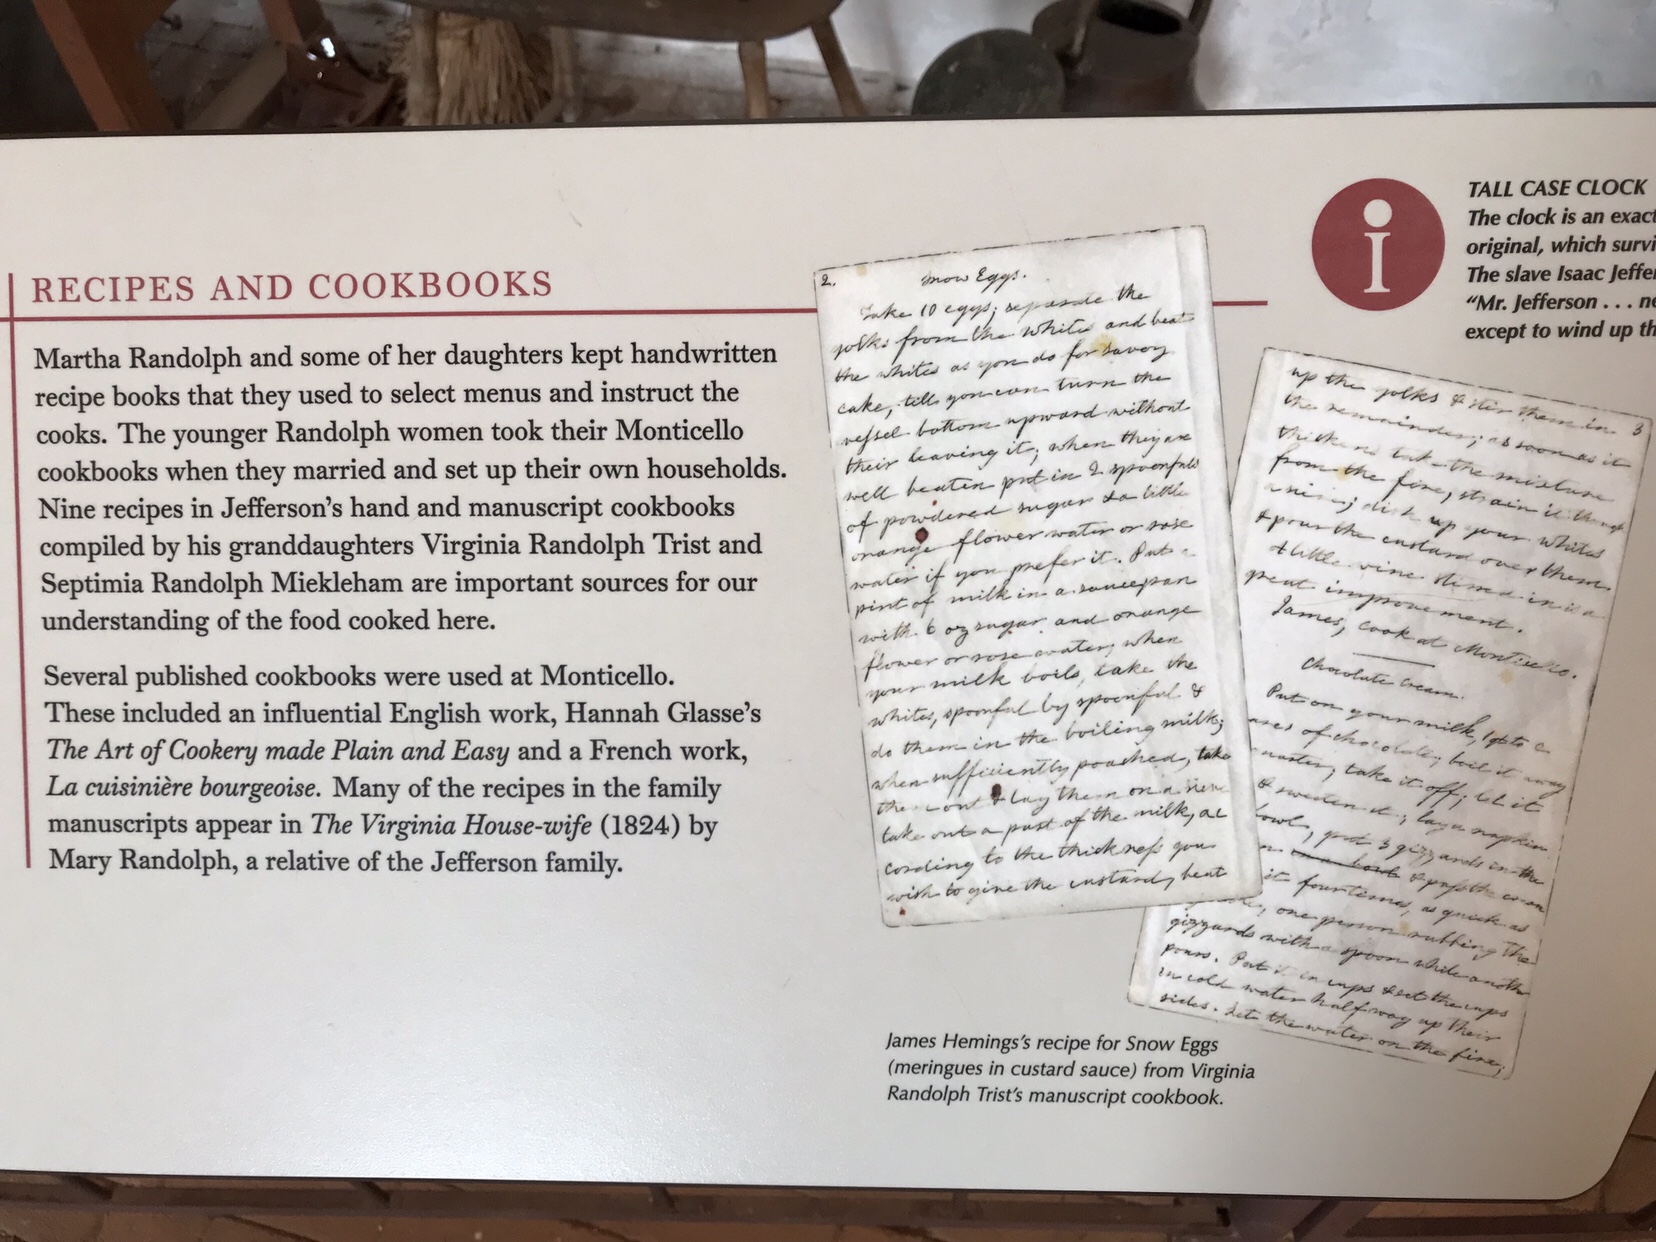 RECIPES AND COOKBOOKS
Martha Randolph and some of her daughters kept handwritten
recipe books that they used to select menus and instruct the
cooks. The younger Randolph women took their Monticello
cookbooks when they married and set up their own households.
Nine recipes in Jefferson's hand and manuscript cookbooks
compiled by his granddaughters Virginia Randolph Trist and
Septimia Randolph Miekleham are important sources for our
understanding of the food cooked here.
Several published cookbooks were used at Monticello.
These included an influential English work, Hannah Glasse's
The Art of Cookery made Plain and Easy and a French work,
La cuisinière bourgeoise. Many of the recipes in the family
manuscripts appear in The Virginia House-wife (1824) by
Mary Randolph, a relative of the Jefferson family.
2. Snow Eggs.
Take 10 eggs; separate the
yolks from the whites and beat
the whites as you do for savoy
cake, till you can turn the
vessel bottom upward without
their leaving it; when they are
well beaten put in 2 spoonfuls
of powdered sugar & a little
orange flower water or rose
water if you prefer it. Put a
pint of milk in a saucepan
with 6 oz sugar and orange
flower or rose water; when
your milk boils, take the
whites, spoonful by spoonful &
do them in the boiling milk;
when sufficiently poached, take
them out & lay them on a sieve
take out a part of the milk, ac
cording to the thickness you
wish to give the custard, beat
3
up the yolks & stir them in
the remainder; as soon as it
thickens take the mixture
from the fire, strain it through
a sieve; dish up your whites
& pour the custard over them.
A little wine stirred in is a
great improvement.
James, cook at Monticello.
Chocolate Cream.
Put on your milk, 1 qt to
of chocolate; boil it away
take it off; let it
& sweeten it; lay a napkin
bowl, put 3 gizzards in the
& pass the cream
it four times, as quick as
one person rubbing the
gizzards with a spoon while another
pours. Put it in cups & set the cups
in cold water half way up their
sides. Set the water on the fire,
James Hemings's recipe for Snow Eggs
(meringues in custard sauce) from Virginia
Randolph Trist's manuscript cookbook.
i
TALL CASE CLOCK
The clock is an exact
original, which survi
The slave Isaac Jeffe
"Mr. Jefferson . . . ne
except to wind up th